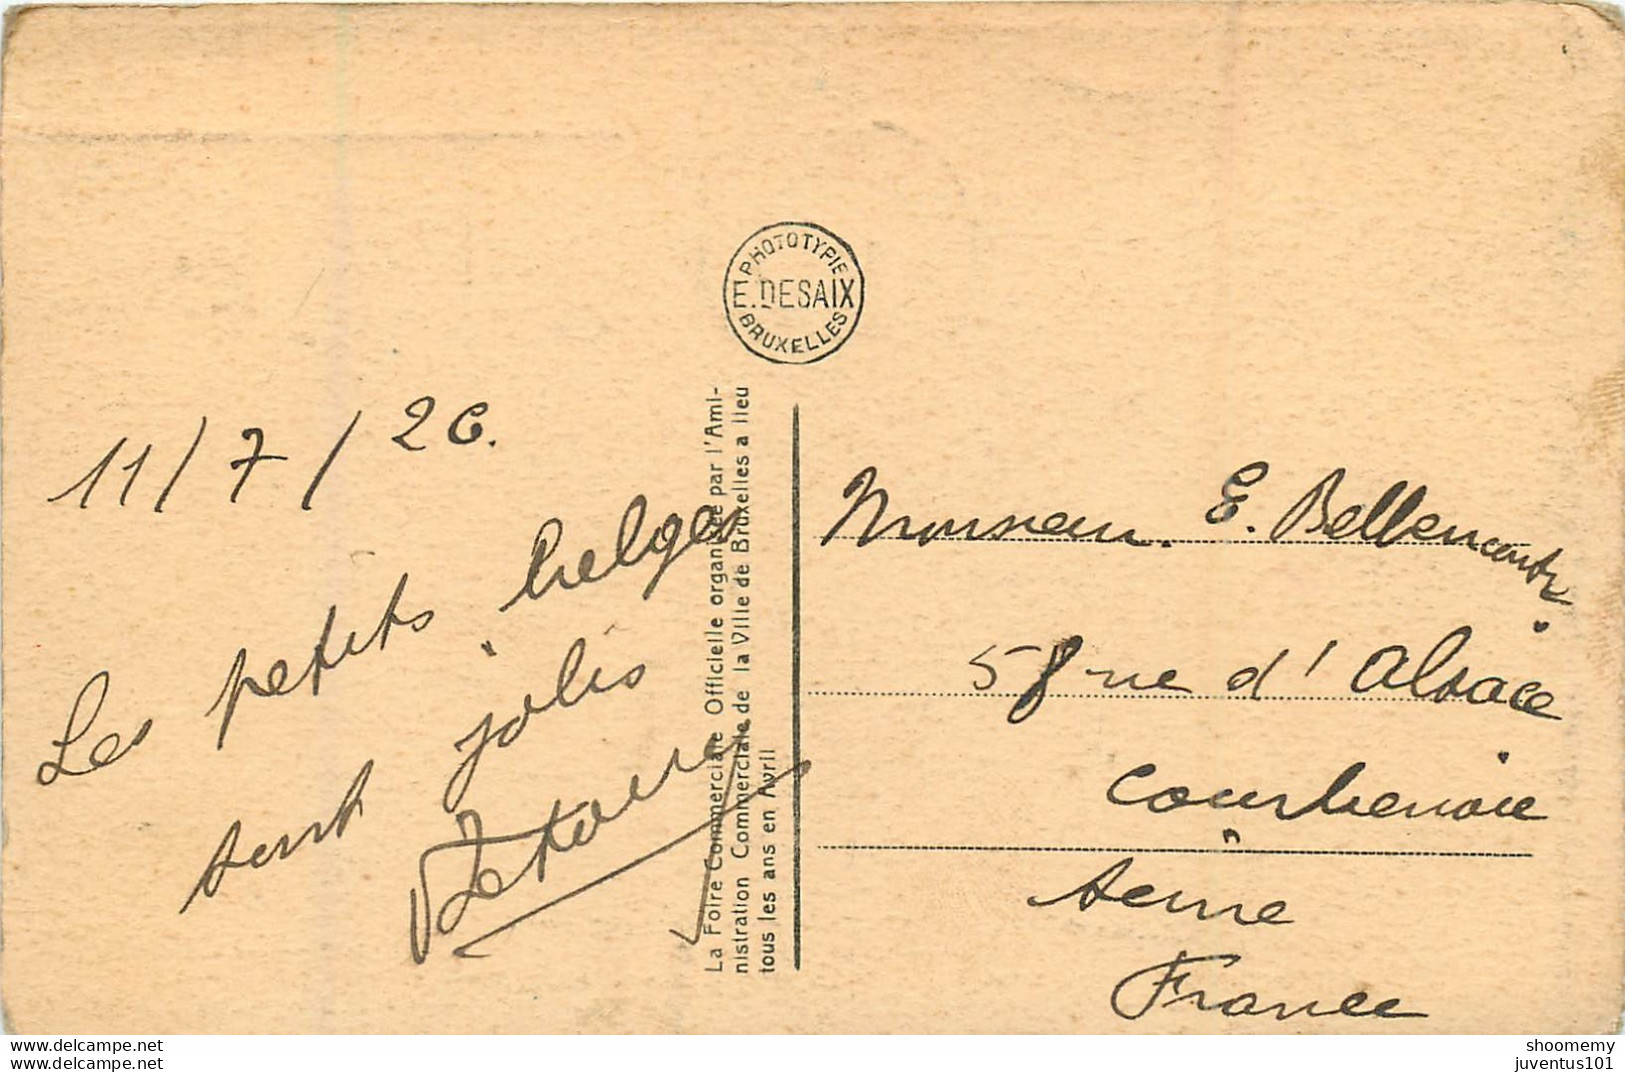 11/7/26.
Les petits belges
sont jolis
PHOTOTYPIE
E. DESAIX
BRUXELLES
La Foire Commerciale Officielle organisée par l'Ami-
nistration Commerciale de la Ville de Bruxelles a lieu
tous les ans en Avril
Monsieur. E. Bellencontre.
58 rue d'Alsace
Courbevoie
Seine
France
www.delcampe.net
www.delcampe.net
shoomemy
juventus101